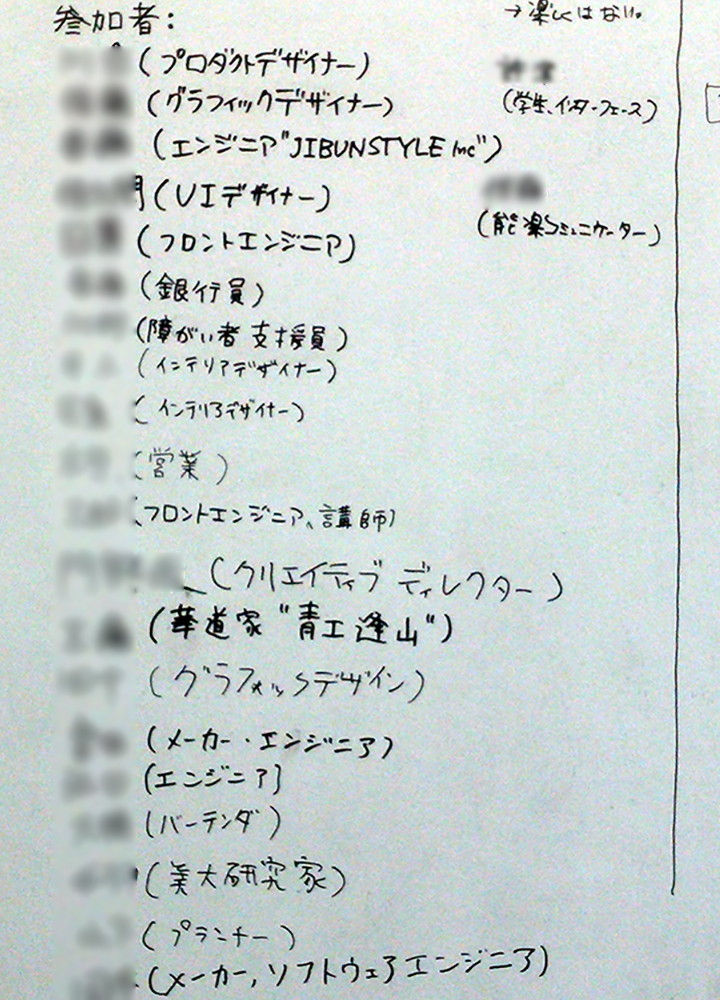 →楽しくはない。
参加者:
(プロダクトデザイナー)
(グラフィックデザイナー)
(学生、インターフェース)
(エンジニア"JIBUNSTYLE inc")
(UIデザイナー)
(能楽コミュニケーター)
(フロントエンジニア)
(銀行員)
(障がい者 支援員)
(インテリアデザイナー)
(インテリアデザイナー)
(営業)
(フロントエンジニア、講師)
(クリエイティブ ディレクター)
(華道家 "青工 逢山")
(グラフィックデザイン)
(メーカー・エンジニア)
(エンジニア)
(バーテンダ)
(美大研究家)
(プランナー)
(メーカー,ソフトウェアエンジニア)